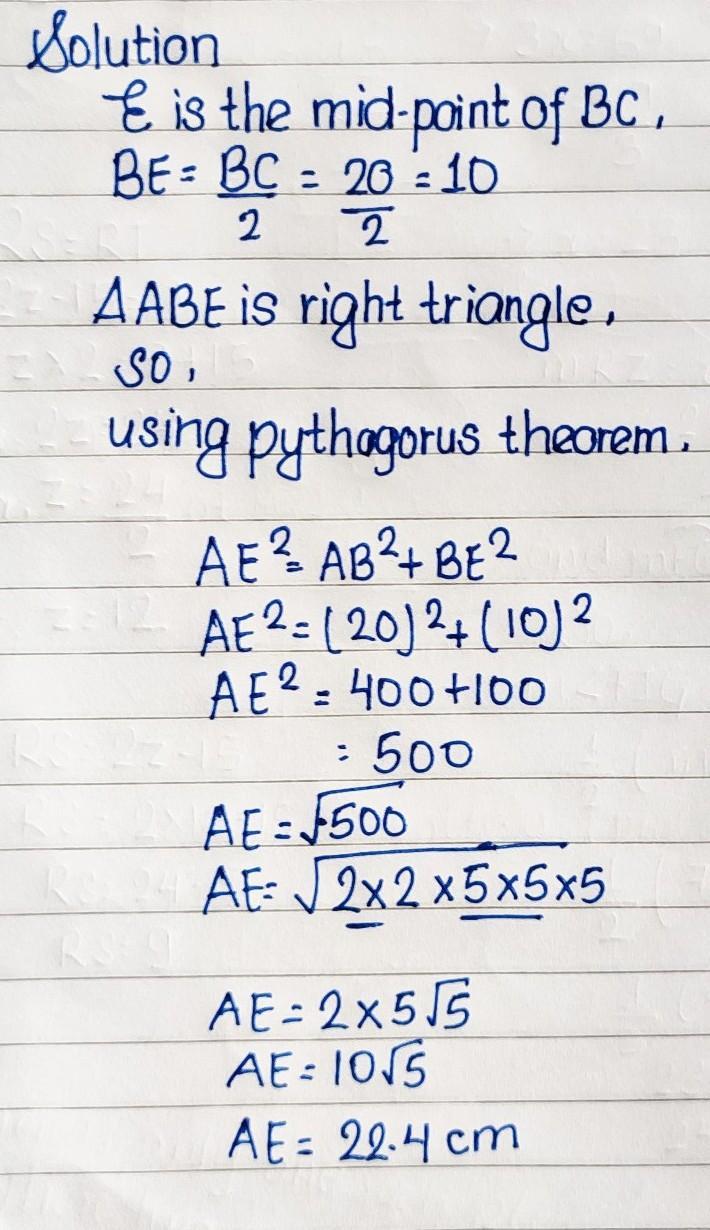 Solution
E is the mid-point of BC,
BE = BC/2 = 20/2 = 10
ΔABE is right triangle,
so,
using pythagorus theorem.
AE² = AB² + BE²
AE² = (20)² + (10)²
AE² = 400 + 100
= 500
AE = √500
AE = √2×2×5×5×5
AE = 2×5√5
AE = 10√5
AE = 22.4 cm